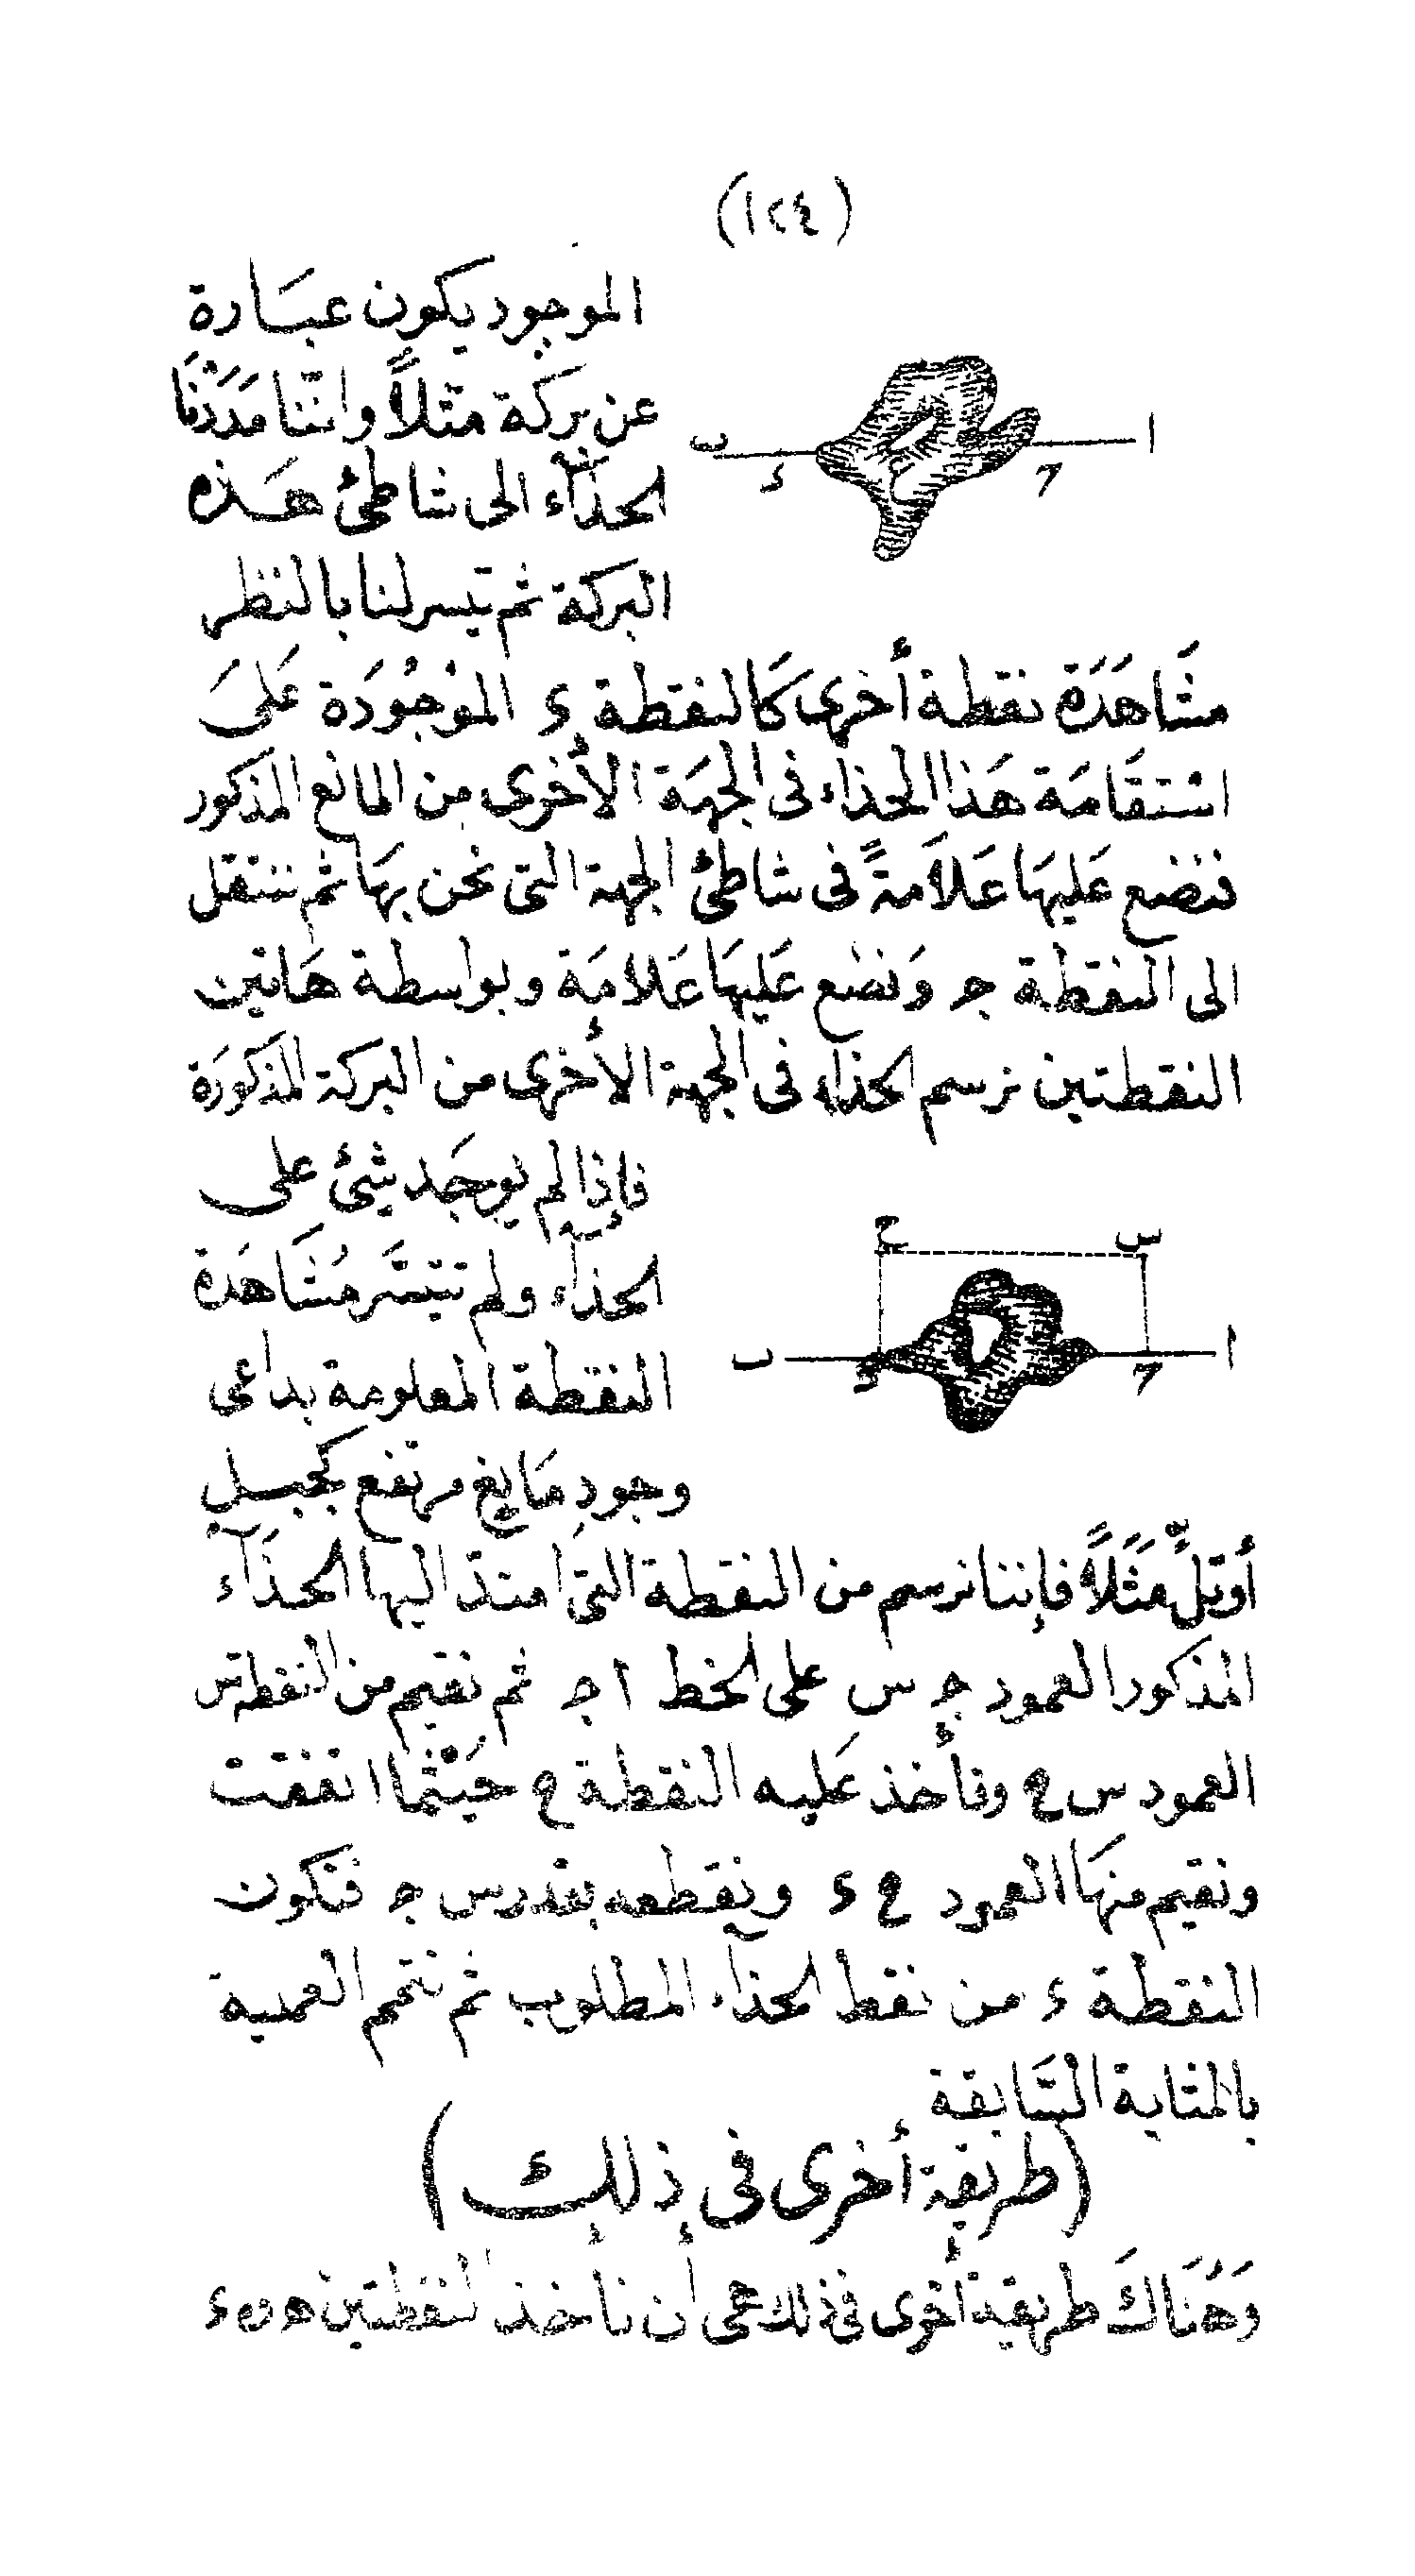 (١٢٤)
الموجود يكون عبَارة
عن بركة مثلاً واننا مَدَدْنَا
الحذآء الى شاطئ هَذه
البركة ثم تيسر لنا بالنظر
ا
ب
ء
ج
ع
مشَاهَدَة نقطة أخرى كَالنقطة ء الموْجُودَة عَلىَ
استقَامَة هَذا الحذاء فى الجهَة الأخرى من المانع المذكور
فنضع عَليهَا عَلاَمةً فى شاطئ الجهة التى نحن بهَا ثم ننتقل
الى النقطة جـ وَنضع عَليهَا عَلامَة وبواسطة هَاتين
النقطتين نرسم الحذاء فى الجهة الأخرى من البركة المذكورَة
فإذا لم يوجَد شئ على
الحذآء ولم تتيسَّر مُشَاهَدَة
النقطة المعلومة بداعى
وجودِ مَانِعٍ مرتفع كجبل
س
ح
ا
ب
ء
ج
أوتلٍّ مَثَلاً فإننا نرسم من النقطة التى امتدّ اليها الحذَآء
المذكور العمود جـ س على الخط ا جـ ثم نقيم من النقطة س
العمود س ح ونأخذ عَليه النقطة ح حَيْثما اتفقت
ونقيم منهَا العمود ح ء ونقطعه بقدر س جـ فتكون
النقطة ء من نقط الحذآء المطلوب ثم نتمم العملية
بالمثابة السَّابقة
(طريقة أخرى فى ذلك)
وَهُنَاكَ طريقة أخرى فى ذلك هى أن نأخذ النقطتين هـ و ء